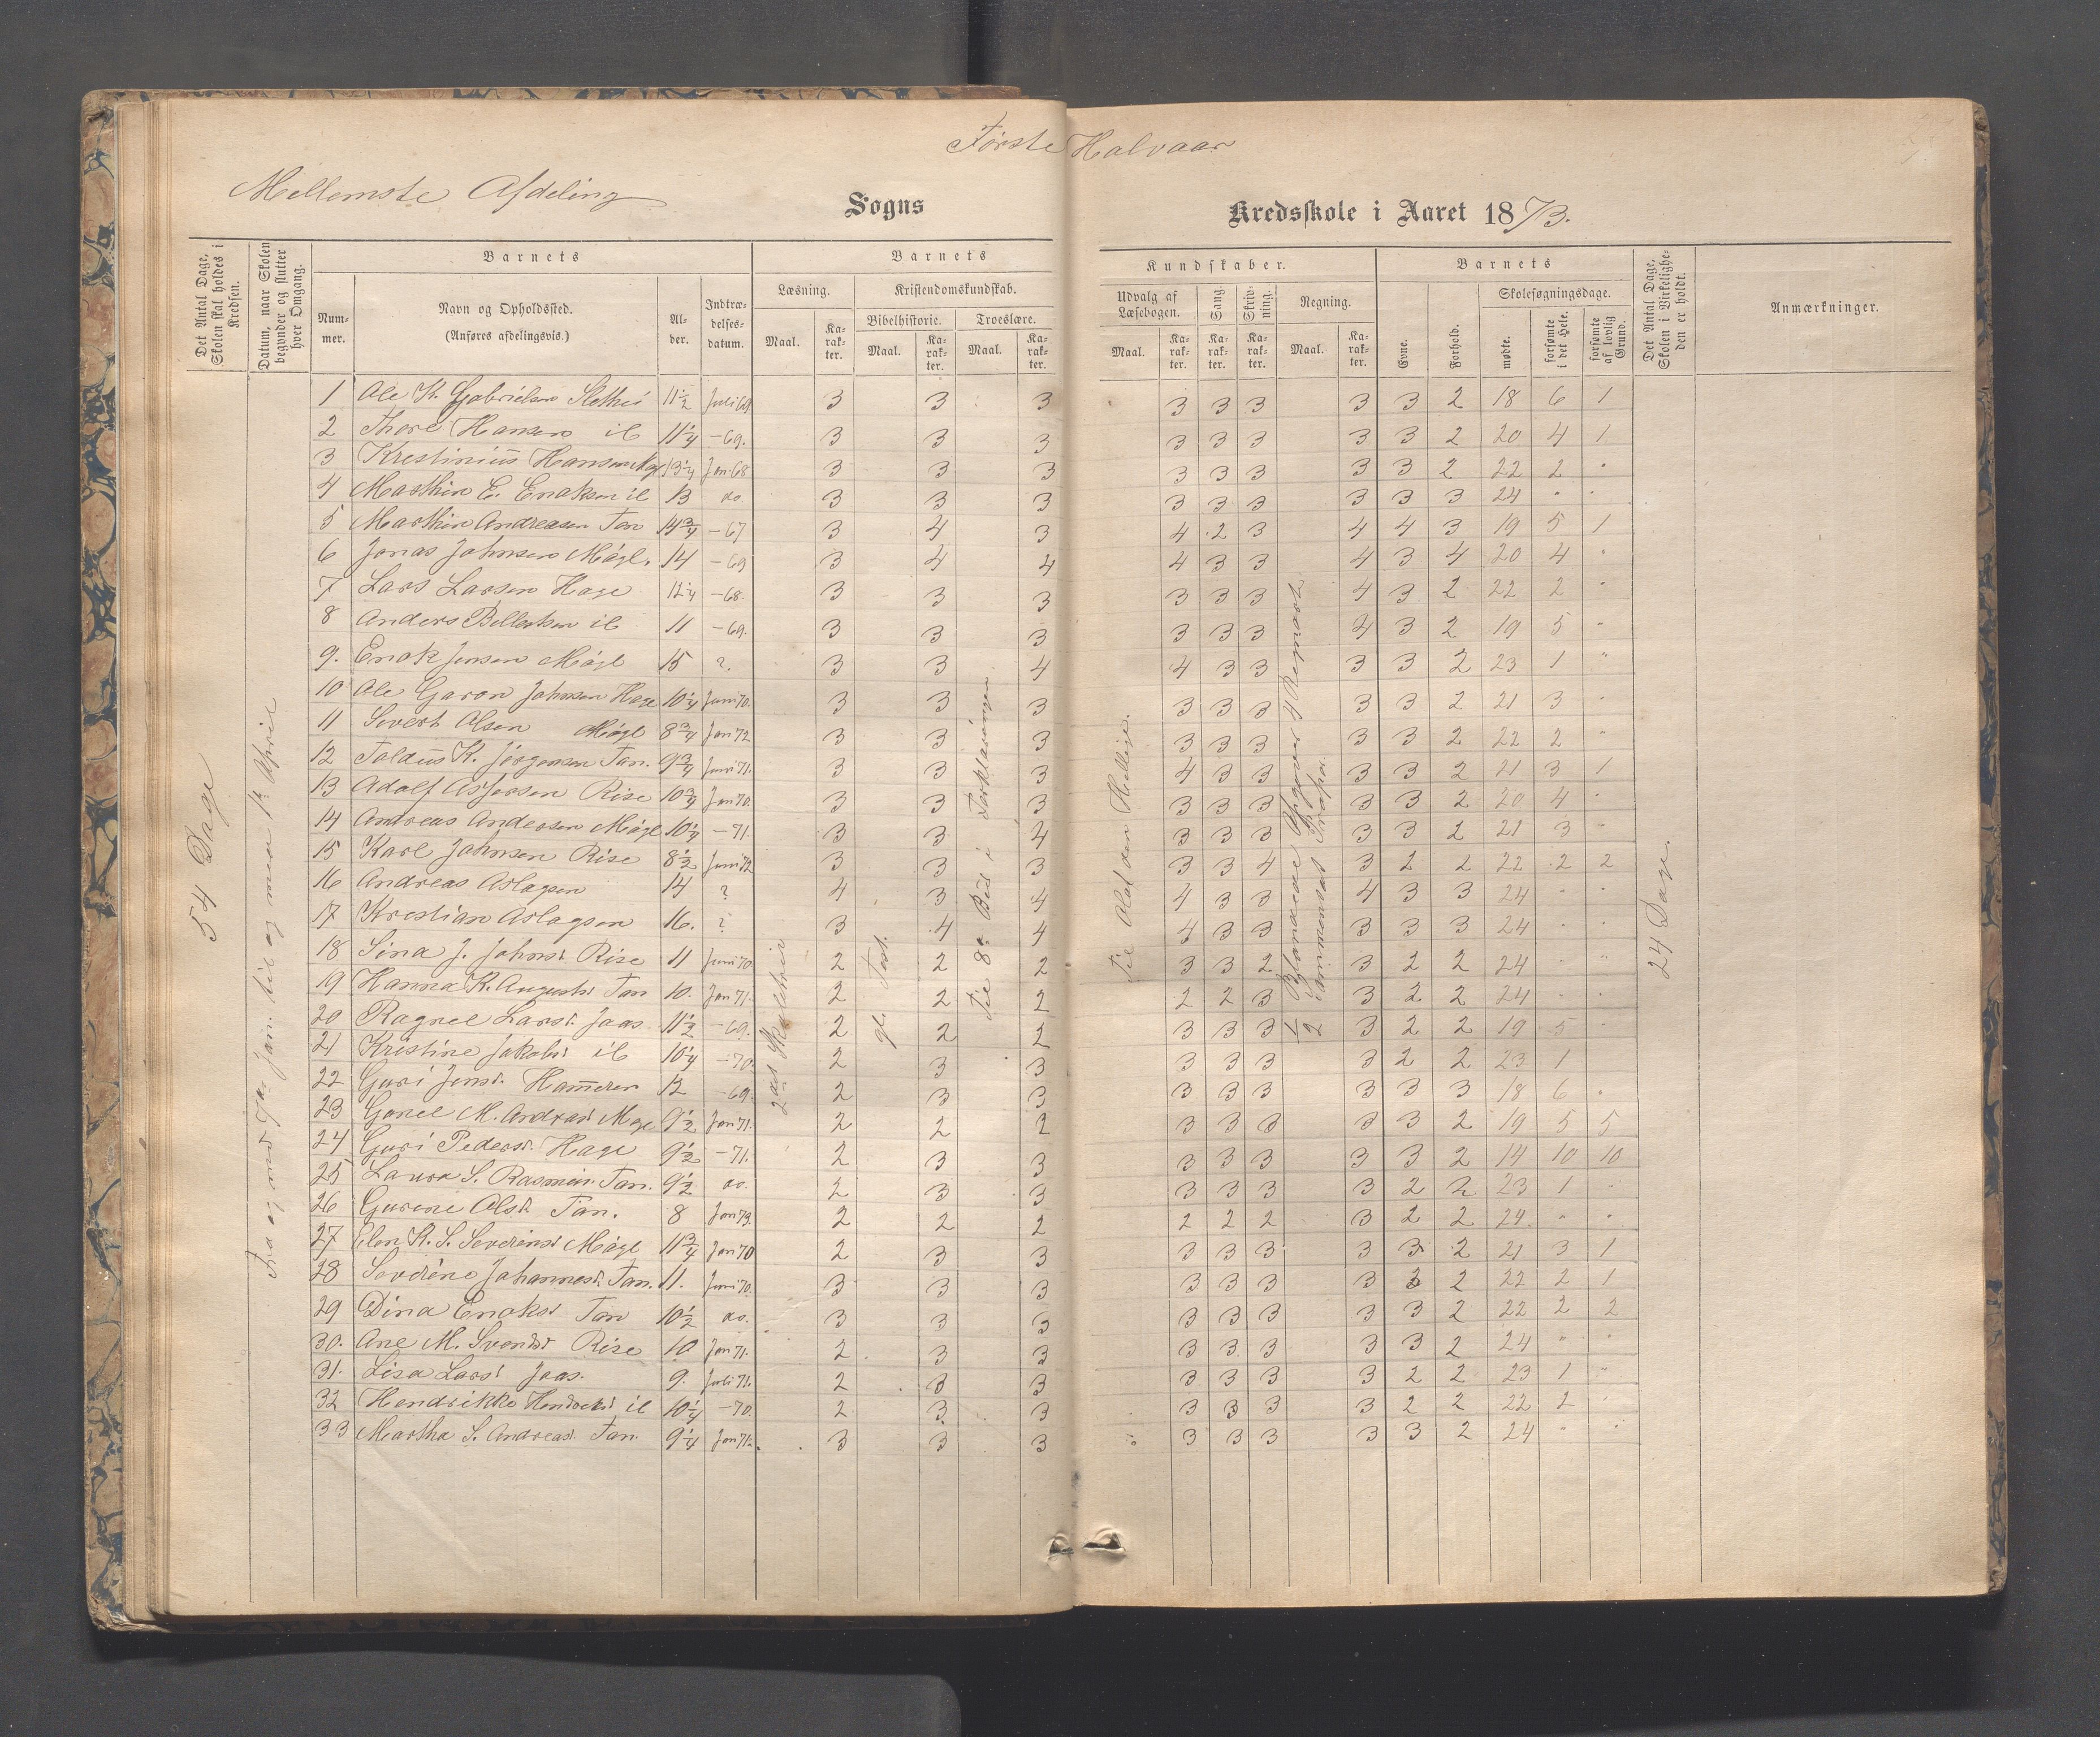 Første Halvaar
Mellemste Afdeling
Sogns Kredsskole i Aaret 1873.
Det Antal Dage, Skolen skal holdes i Kredsen.
Datum, naar Skolen begynder og slutter hver Omgang.
Barnets
Nummer.
Navn og Opholdssted.
(Anføres afdelingsvis.)
Alder.
Indtrædelsesdatum.
Barnets Kundskaber.
Læsning.
Maal.
Karakter.
Kristendomskundskab.
Bibelhistorie.
Maal.
Karakter.
Troeslære.
Maal.
Karakter.
Udvalg af Læsebogen.
Maal.
Karakter.
Sang.
Karakter.
Skrivning.
Karakter.
Regning.
Maal.
Karakter.
Barnets
Evne.
Forhold.
Skolesøgningsdage.
mødte.
forsømte i det Hele.
forsømte af lovlig Grund.
Det Antal Dage, Skolen i Virkeligheden er holdt.
Anmærkninger.
54 Dage
Fra og med Jan. til og med 1ste April
2det Skoletrin
gl. Test.
Til 8de Bud i Forklaringen
Til Olaf den Hellige.
Blandede Opgaver 4 Regnearter
Sammensat
24 Dage.
1 Ole K. Gabrielsen 11½ Juli 69 3 3 3 3 3 3 3 3 2 18 6 1
2 Thore Hansen il 11¼ — 69. 3 3 3 3 3 3 3 3 2 20 4 1
3 Krestinius Hansen 13¼ Jan 68 3 3 3 3 3 3 3 3 2 22 2 "
4 Marthin E. Enoksen il 13 do. 3 3 3 3 3 3 3 3 3 24 " "
5 Marthin Andreasen Tan 14¾ — 67 3 4 3 4 2 3 4 4 3 19 5 1
6 Jonas Johnsen Mögl. 14 — 69 3 4 4 4 3 3 4 3 4 20 4 "
7 Lars Larsen Hage 12¼ — 68. 3 3 3 3 3 3 4 3 2 22 2 "
8 Anders il 11 — 69. 3 3 3 3 3 3 4 3 2 19 5 "
9. Enok Jensen Mögl 15 ?. 3 3 4 4 3 3 3 3 2 23 1 "
10 Ole Garon Johnsen Hage 10¼ Juni 70. 3 3 3 3 3 3 3 3 2 21 3 "
11 Sivert Olsen Mögl 8¾ Jan 72 3 3 3 3 3 3 3 3 2 22 2 "
12 K. Jörgensen Tan. 9¾ Juni 71. 3 3 3 4 3 3 3 3 2 21 3 1
13 Adolf Asjersen Rise 10¾ Jan 70. 3 3 3 3 3 3 3 3 2 20 4 "
14 Andreas Andersen Mögl 10¼ — 71. 3 3 4 3 3 3 3 3 2 21 3 "
15 Karl Johnsen Rise 8½ Juni 72 3 3 3 3 3 4 3 2 2 22 2 2
16 Andreas Aslagsen 14 ? 4 3 4 4 3 3 4 3 3 24 " "
17 Kristian Aslagsen 16. ? 3 4 4 4 3 3 3 3 3 24 " "
18 Sina J. Johnsd. Rise 11 Juni 70 2 2 2 3 3 2 3 2 2 24 " "
19 Hanna K. Augustsd. Tan 10. Jan 71. 2 2 2 2 2 3 3 2 2 24 " "
20 Ragnel Larsd. Jaas. 11½ — 69. 2 2 2 3 3 3 3 2 2 19 5 "
21 Kristine Jakobsd. il 10¼ — 70. 2 3 3 3 3 3 3 2 2 23 1
22 Guri Jensd. Hammeren 12 — 69. 2 3 3 3 3 3 3 3 3 18 6 "
23 Gonel M. Andreasd. 9½ Jan 71. 2 2 2 3 3 3 3 3 2 19 5 5
24 Guri Pedersd. Hage 9½ — 71. 2 3 3 3 3 3 3 3 2 14 10 10
25 Laura S. Rasmus. Tan. 9½ do. 2 3 3 3 3 3 3 2 2 23 1 "
26 Gurine Olsd. Tan. 8 Jan 73. 2 2 2 2 2 2 3 2 2 24 " "
27 Elen K. S. Severinsd. Mögl 11¾ Jan 70 2 3 3 3 3 3 3 3 2 21 3 1
28 Severine Johannesd. Tan. 11. Juni 70. 3 3 3 3 3 3 3 2 2 22 2 1
29 Dina Enoksd. Tan 10½ do. 3 3 3 3 3 3 3 3 2 22 2 2
30. Ane M. Svendsd. Rise 10 Jan 71. 2 3 3 3 3 3 3 3 2 24 " "
31. Lisa Larsd. Jaas. 9. Juli 71. 2 3 3 3 3 3 3 2 2 23 1 "
32 Hendrikke Hendriksd. il 10¼ — 70. 2 3 3 3 3 3 3 2 2 22 2 "
33 Martha S. Andreasd. Tan. 9¼ Jan 71. 3 3 3 3 3 3 3 3 2 24 " "